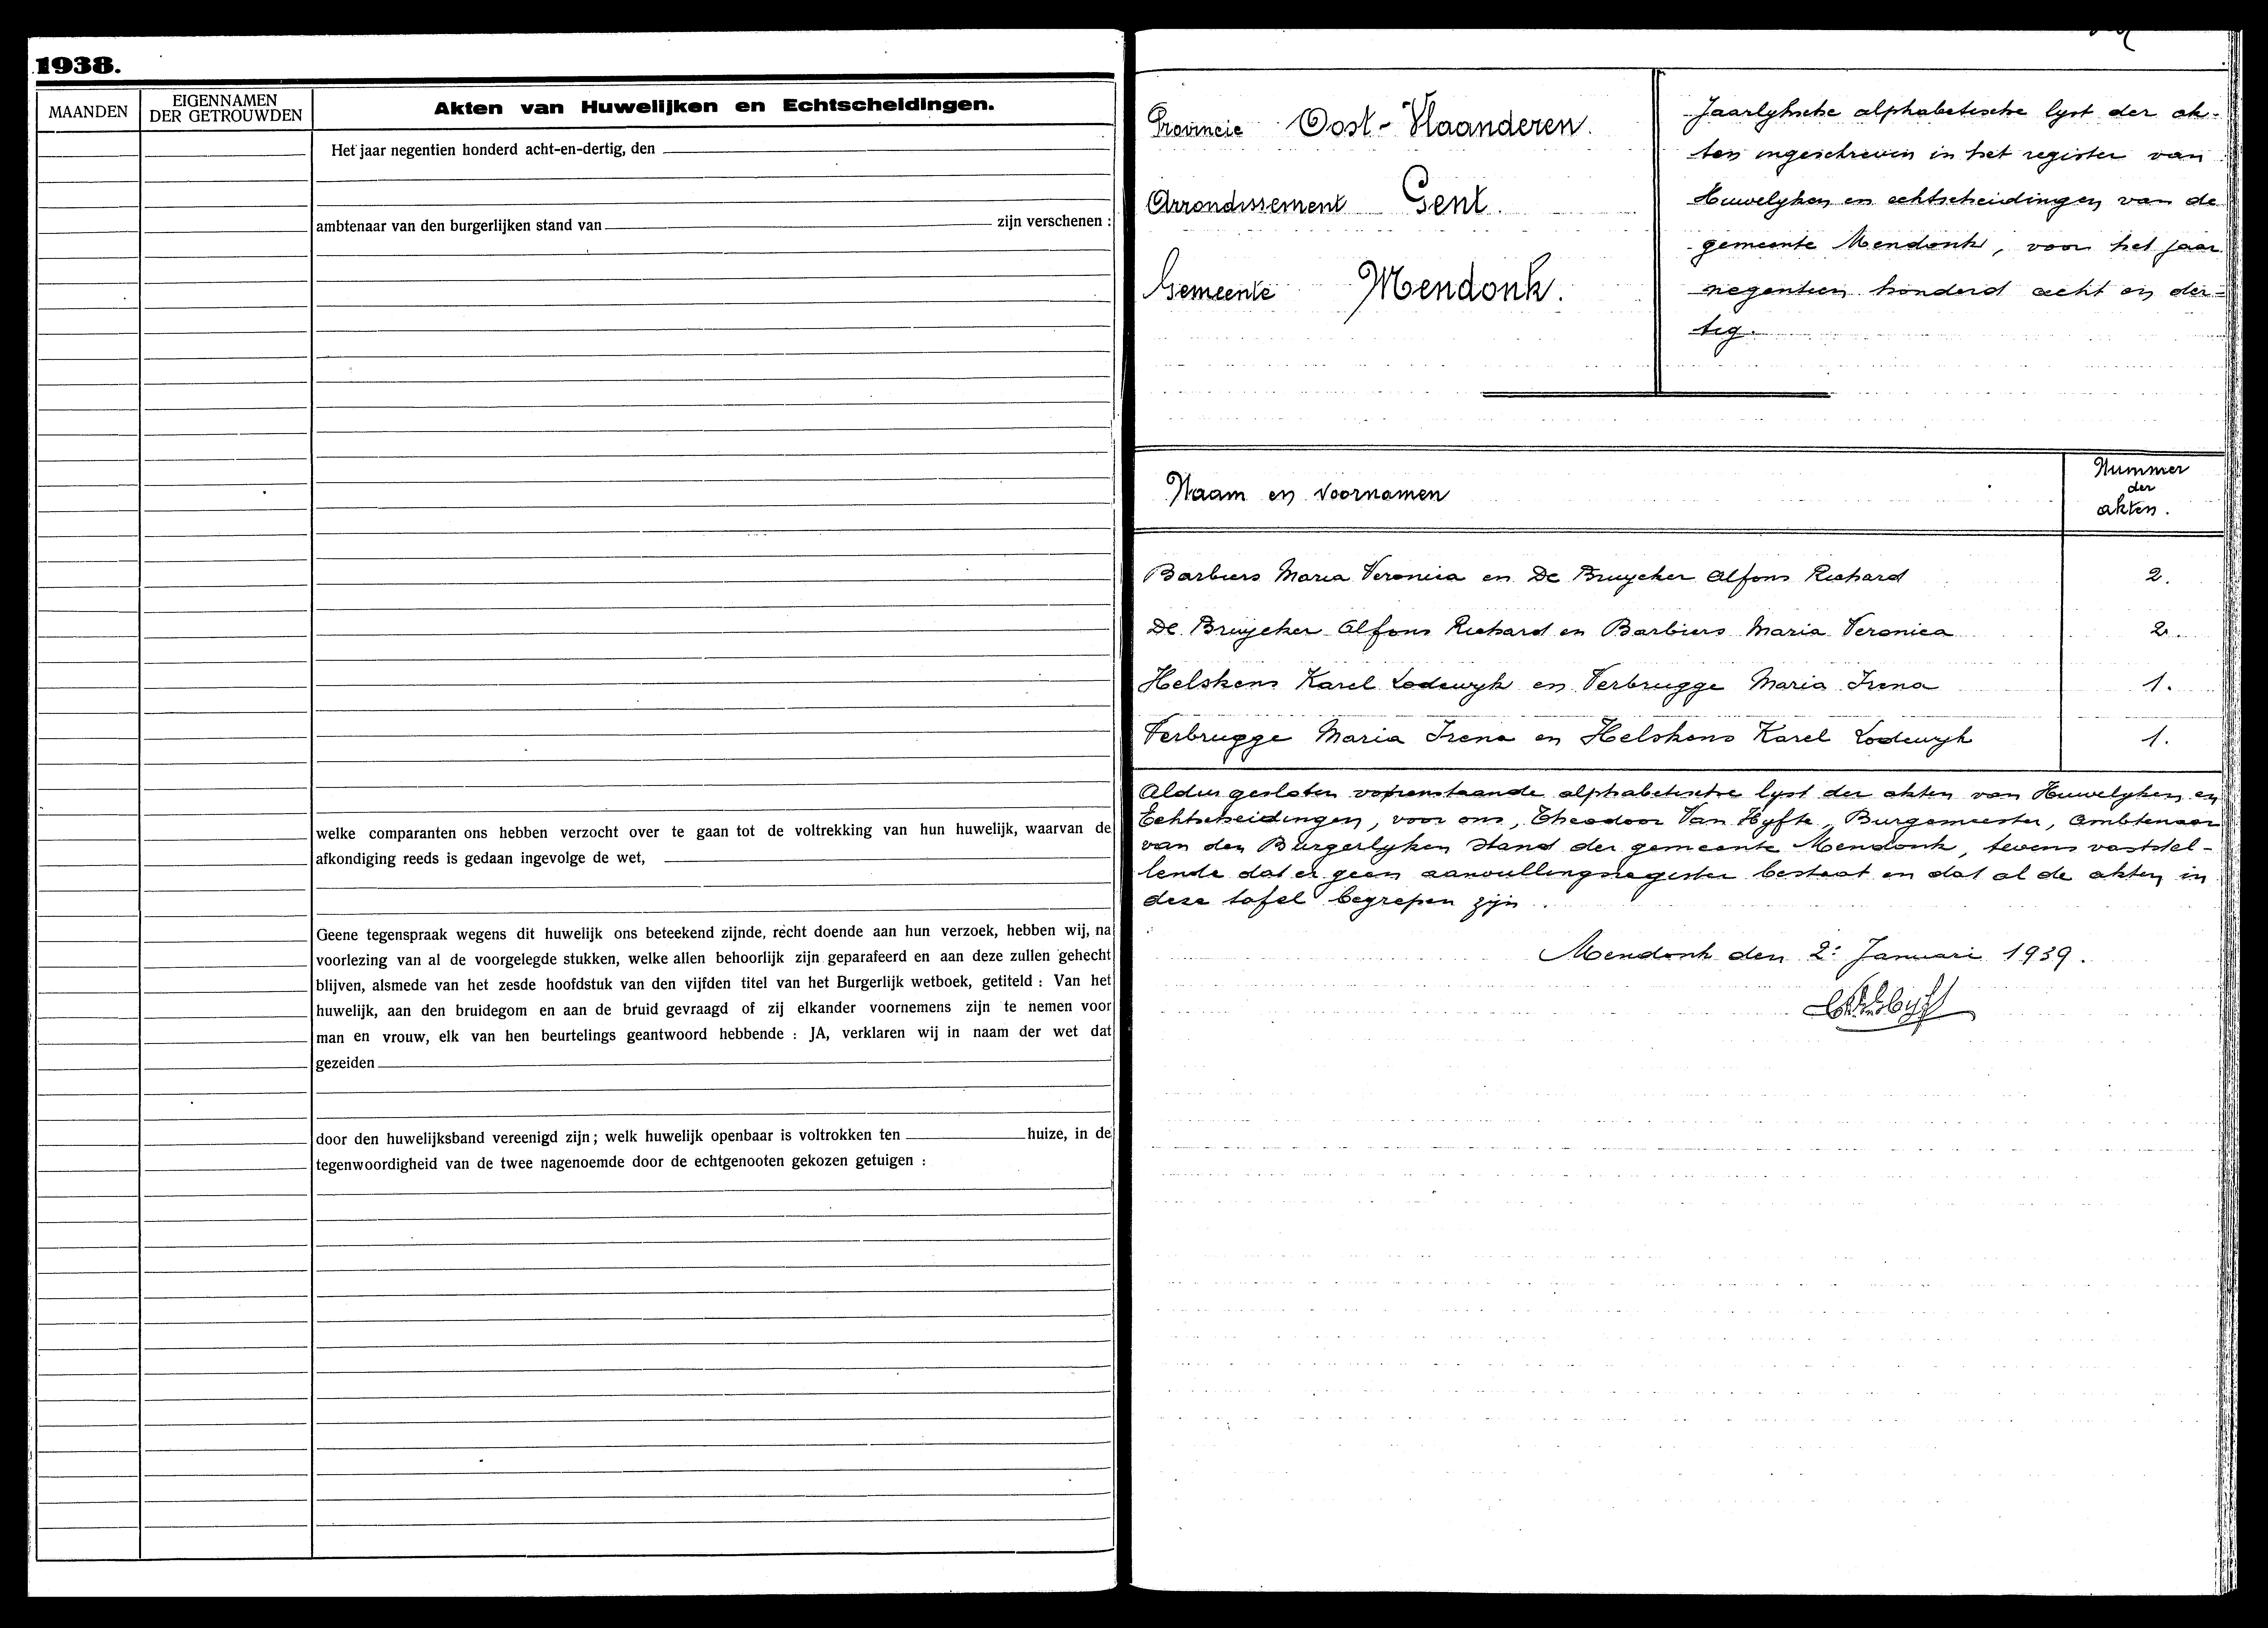 1938.
MAANDEN
EIGENNAMEN
DER GETROUWDEN
Akten van Huwelijken en Echtscheidingen.
Het jaar negentien honderd acht-en-dertig, den
ambtenaar van den burgerlijken stand van zijn verschenen :
welke comparanten ons hebben verzocht over te gaan tot de voltrekking van hun huwelijk, waarvan de
afkondiging reeds is gedaan ingevolge de wet,
Geene tegenspraak wegens dit huwelijk ons beteekend zijnde, recht doende aan hun verzoek, hebben wij, na
voorlezing van al de voorgelegde stukken, welke allen behoorlijk zijn geparafeerd en aan deze zullen gehecht
blijven, alsmede van het zesde hoofdstuk van den vijfden titel van het Burgerlijk wetboek, getiteld : Van het
huwelijk, aan den bruidegom en aan de bruid gevraagd of zij elkander voornemens zijn te nemen voor
man en vrouw, elk van hen beurtelings geantwoord hebbende : JA, verklaren wij in naam der wet dat
gezeiden
door den huwelijksband vereenigd zijn; welk huwelijk openbaar is voltrokken ten huize, in de
tegenwoordigheid van de twee nagenoemde door de echtgenooten gekozen getuigen :
Provincie Oost-Vlaanderen.
Arrondissement Gent.
Gemeente Mendonk.
Jaarlyksche alphabetische lyst der ak-
ten ingeschreven in het register van
Huwelyken en echtscheidingen van de
gemeente Mendonk, voor het jaar
negentien honderd acht en der=
tig.
Naam en voornamen
Nummer
der
akten.
Barbiers Maria Veronica en De Bruycker Alfons Richard 2.
De Bruycker Alfons Richard en Barbiers Maria Veronica 2.
Helskens Karel Lodewyk en Verbrugge Maria Irena 1.
Verbrugge Maria Irena en Helskens Karel Lodewyk 1.
Aldus gesloten vorenstaande alphabetische lyst der akten van Huwelyken en
Echtscheidingen, voor ons, Theodoor Van Hyfte, Burgemeester, Ambtenaar
van den Burgerlyken Stand der gemeente Mendonk, tevens vaststel-
lende dat er geen aanvullingsregister bestaat en dat al de akten in
deze tafel begrepen zijn.
Mendonk den 2: Januari 1939.